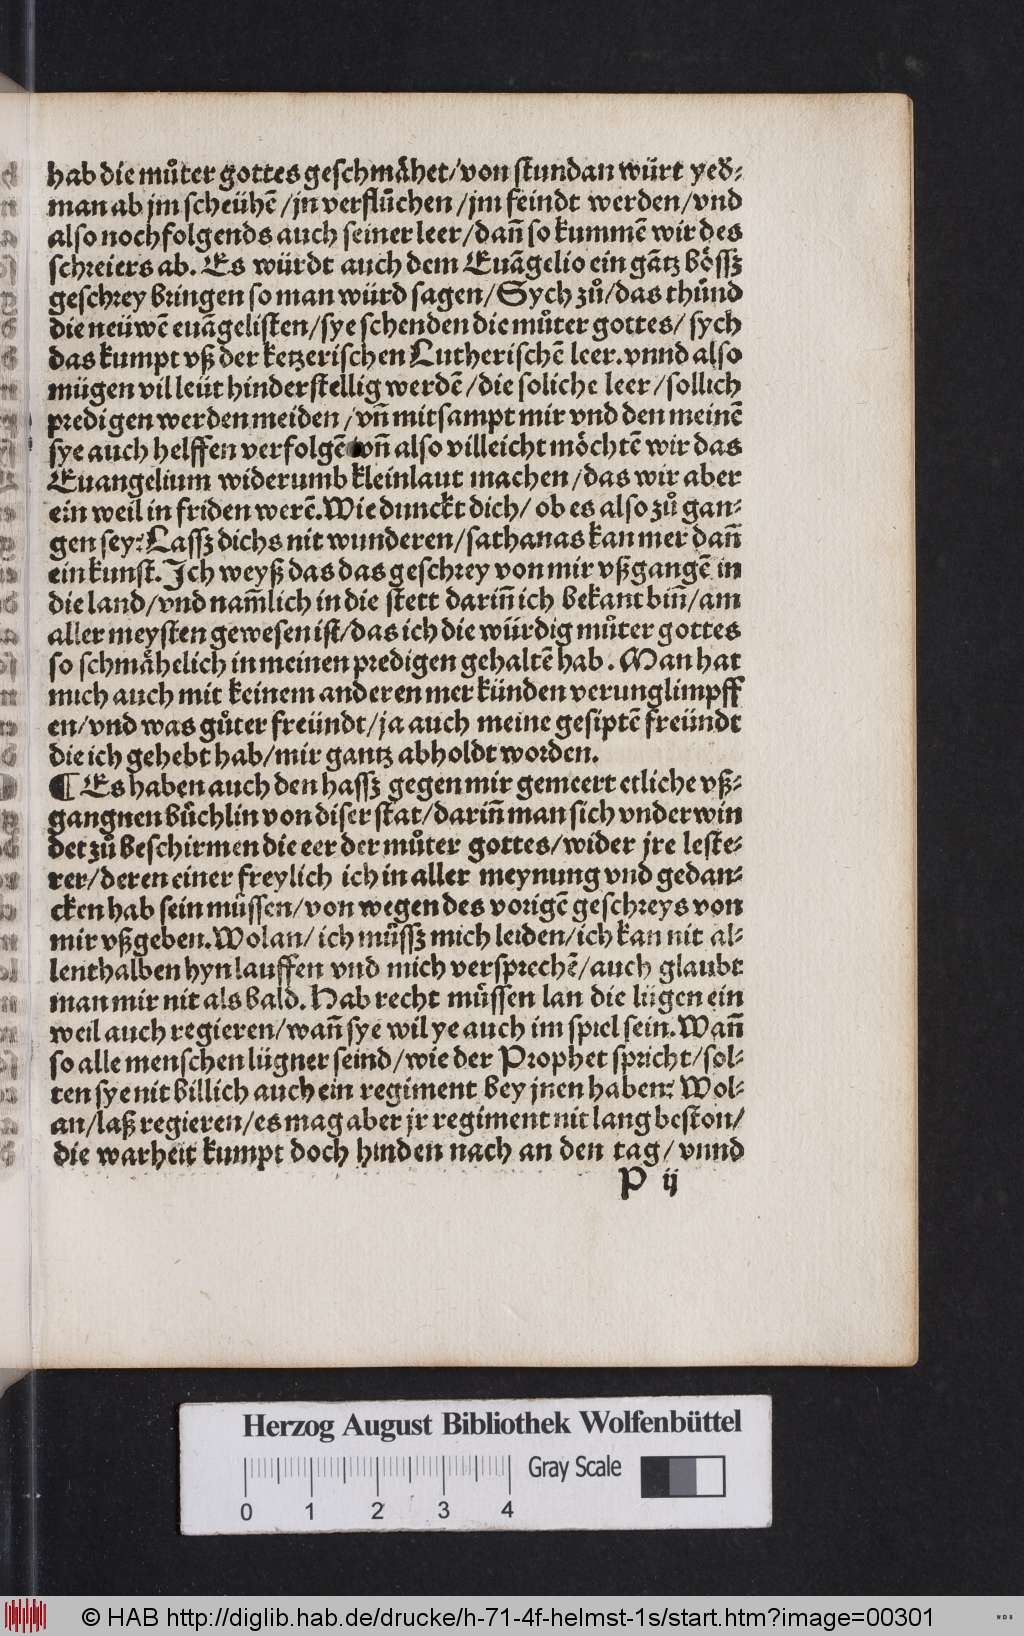 hab die muͦter gottes geschmaͤhet/von stundan würt yed⸗
man ab jm scheühē/jn verfluͦchen/jm feindt werden/vnd
also nochfolgends auch seiner leer/dañ so kummē wir des
schreiers ab. Es würdt auch dem Euāgelio ein gātz boͤssz
geschrey bringen so man würd sagen/Sych zuͦ/das thuͦnd
die neüwē euāgelisten/sye schenden die muͦter gottes/ sych
das kumpt vß der ketzerischen Lutherischē leer.vnnd also
mügen vil leüt hinderstellig werdē/die soliche leer/sollich
predigen werden meiden/vñ mitsampt mir vnd den meinē
sye auch helffen verfolgē vñ also villeicht moͤchtē wir das
Euangelium widerumb kleinlaut machen/das wir aber
ein weil in friden werē.Wie dunckt dich/ ob es also zuͦ gan⸗
gen sey: Lassz dichs nit wunderen/sathanas kan mer dañ
ein kunst. Ich weyß das das geschrey von mir vßgangē in
die land/vnd nam̄lich in die stett dariñ ich bekant biñ/am
aller meysten gewesen ist/das ich die würdig muͦter gottes
so schmaͤhelich in meinen predigen gehaltē hab. Man hat
mich auch mit keinem anderen mer künden verunglimpff
en/vnd was guͦter freündt/ja auch meine gesiptē freündt
die ich gehebt hab/mir gantz abholdt worden.
¶ Es haben auch den hassz gegen mir gemeert etliche vß⸗
gangnen buͤchlin von diser stat/dariñ man sich vnderwin
det zuͦ beschirmen die eer der muͦter gottes/wider jre leste⸗
rer/deren einer freylich ich in aller meynung vnd gedan⸗
cken hab sein muͤssen/von wegen des vorigē geschreys von
mir vßgeben.Wolan/ ich muͤssz mich leiden/ich kan nit al⸗
lenthalben hyn lauffen vnd mich versprechē/auch glaubt
man mir nit als bald. Hab recht muͤssen lan die lügen ein
weil auch regieren/wañ sye wil ye auch im spiel sein.Wañ
so alle menschen lügner seind/wie der Prophet spricht/sol⸗
ten sye nit billich auch ein regiment bey jnen haben: Wol⸗
an/laß regieren/es mag aber jr regiment nit lang beston/
die warheit kumpt doch hinden nach an den tag/ vnnd
P ij
Herzog August Bibliothek Wolfenbüttel
Gray Scale
0 1 2 3 4
© HAB http://diglib.hab.de/drucke/h-71-4f-helmst-1s/start.htm?image=00301